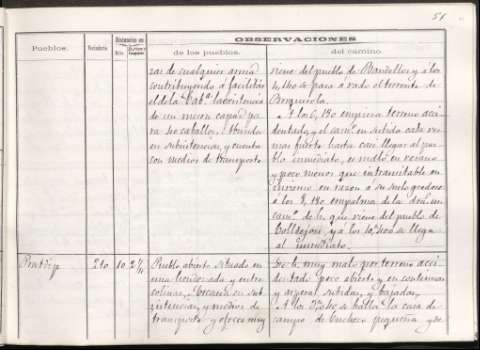 51
Pueblos.
Vecindario
Distancias en
OBSERVACIONES
de los pueblos.
del camino.
zas de cualquier arma
contribuyendo á facilitar
la existencia
de un meson capaz pa
ra 40 caballos. Abunda
en subsistencias, y cuenta
con medios de transporte.
viene del pueblo de Vandellos y á los
se pasa á vado el torrente de
empieza terreno acci
dentado, y el camº en subida cada vez
mas fuerte hasta casi llegar al pue
blo inmediato, es malo en verano
y poco menos que intransitable en
invierno en razon á su suelo gredoso
á los empalma de la dra. un
camº de h. que viene del pueblo de
y á los se llega
al inmediato.
Pratdip
210
10
Pueblo abierto situado en
una hondonada y entre
colinas. Escaso en sub
sistencias, y medios de
transporte y ofrece muy
De h. muy malo por terreno acci
dentado poco abierto y en continuas
y asperas subidas, y bajadas,
A los se halla la casa de
campo de pequeña y de